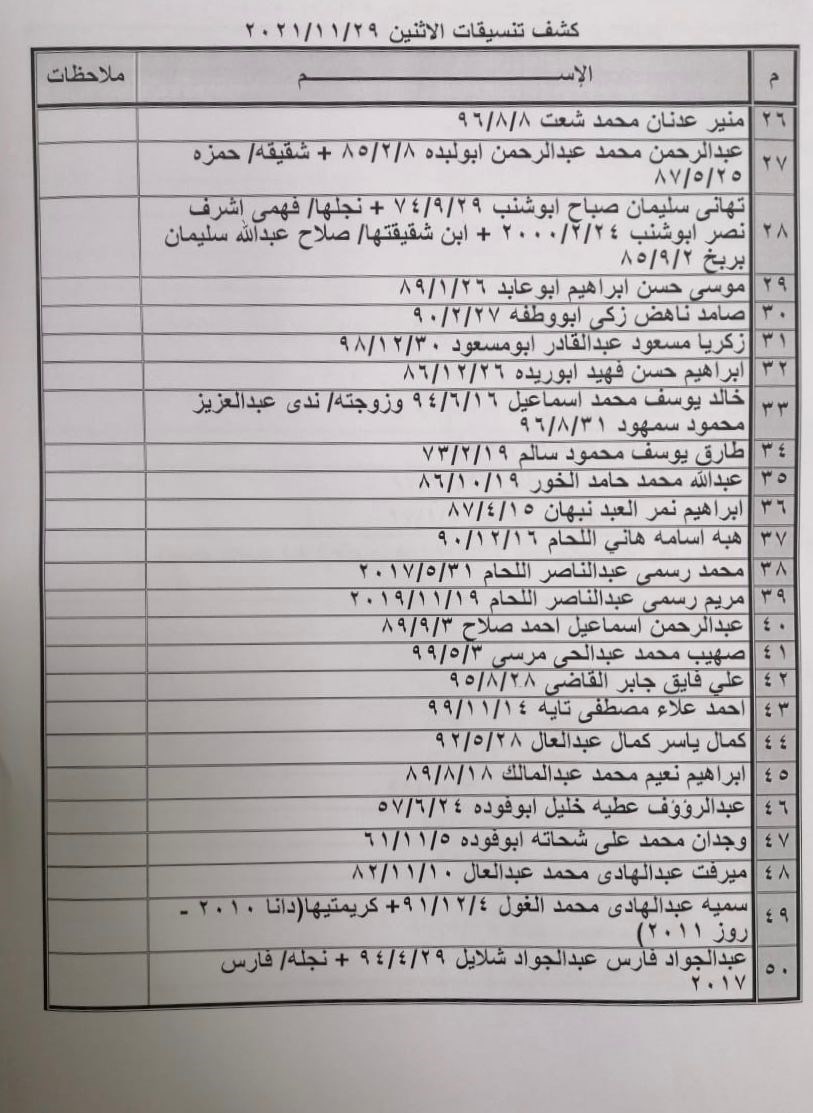 كشف تنسيقات الاثنين ٢٠٢١/١١/٢٩
م الإســـــــــــم ملاحظات
٢٦ منير عدنان محمد شعت ٩٦/٨/٨
٢٧ عبدالرحمن محمد عبدالرحمن ابولبده ٨٥/٢/٨ + شقيقه/ حمزه
٨٧/٥/٢٥
٢٨ تهانى سليمان صباح ابوشنب ٧٤/٩/٢٩ + نجلها/ فهمى اشرف
نصر ابوشنب ٢٠٠٠/٢/٢٤ + ابن شقيقتها/ صلاح عبدالله سليمان
بربخ ٨٥/٩/٢
٢٩ موسى حسن ابراهيم ابوعابد ٨٩/١/٢٦
٣٠ صامد ناهض زكى ابووطفه ٩٠/٢/٢٧
٣١ زكريا مسعود عبدالقادر ابومسعود ٩٨/١٢/٣٠
٣٢ ابراهيم حسن فهيد ابوريده ٨٦/١٢/٢٦
٣٣ خالد يوسف محمد اسماعيل ٩٤/٦/١٦ وزوجته/ ندى عبدالعزيز
محمود سمهود ٩٦/٨/٣١
٣٤ طارق يوسف محمود سالم ٧٣/٢/١٩
٣٥ عبدالله محمد حامد الخور ٨٦/١٠/١٩
٣٦ ابراهيم نمر العبد نبهان ٨٧/٤/١٥
٣٧ هبه اسامه هاني اللحام ٩٠/١٢/١٦
٣٨ محمد رسمى عبدالناصر اللحام ٢٠١٧/٥/٣١
٣٩ مريم رسمى عبدالناصر اللحام ٢٠١٩/١١/١٩
٤٠ عبدالرحمن اسماعيل احمد صلاح ٨٩/٩/٣
٤١ صهيب محمد عبدالحى مرسى ٩٩/٥/٣
٤٢ علي فايق جابر القاضى ٩٥/٨/٢٨
٤٣ احمد علاء مصطفى تايه ٩٩/١١/١٤
٤٤ كمال ياسر كمال عبدالعال ٩٢/٥/٢٨
٤٥ ابراهيم نعيم محمد عبدالمالك ٨٩/٨/١٨
٤٦ عبدالرؤؤف عطيه خليل ابوفوده ٥٧/٦/٢٤
٤٧ وجدان محمد على شحاته ابوفوده ٦١/١١/٥
٤٨ ميرفت عبدالهادى محمد عبدالعال ٨٢/١١/١٠
٤٩ سميه عبدالهادى محمد الغول ٩١/١٢/٤+ كريمتيها(دانا ٢٠١٠ -
روز ٢٠١١)
٥٠ عبدالجواد فارس عبدالجواد شلايل ٩٤/٤/٢٩ + نجله/ فارس
٢٠١٧